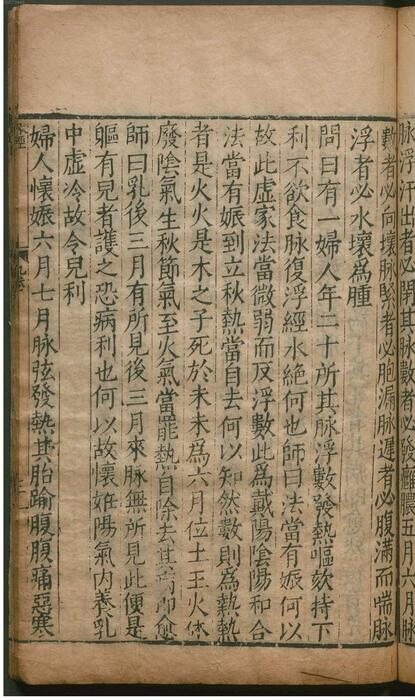 脉浮汗出者必閉其脉數者必發癰膿五月六月脉
數者必向壞脉緊者必胞漏脉遲者必腹滿而喘脉
浮者必水壞爲腫
問曰有一婦人年二十所其脉浮數發熱嘔欬持下
利不欲食脉復浮經水絶何也師曰法當有娠何以
故此虛家法當微弱而反浮數此爲戴陽陰陽和合
法當有娠到立秋熱當自去何以知然數則爲熱熱
者是火火是木之子死於未未爲六月位土王火休
廢陰氣生秋節氣至火氣當罷熱自除去其病即愈
師曰乳後三月有所見後三月來脉無所見此便是
軀有兒者護之恐病利也何以故懷姙陽氣內養乳
中虛冷故令兒利
婦人懷娠六月七月脉弦發熱其胎踰腹腹痛惡寒